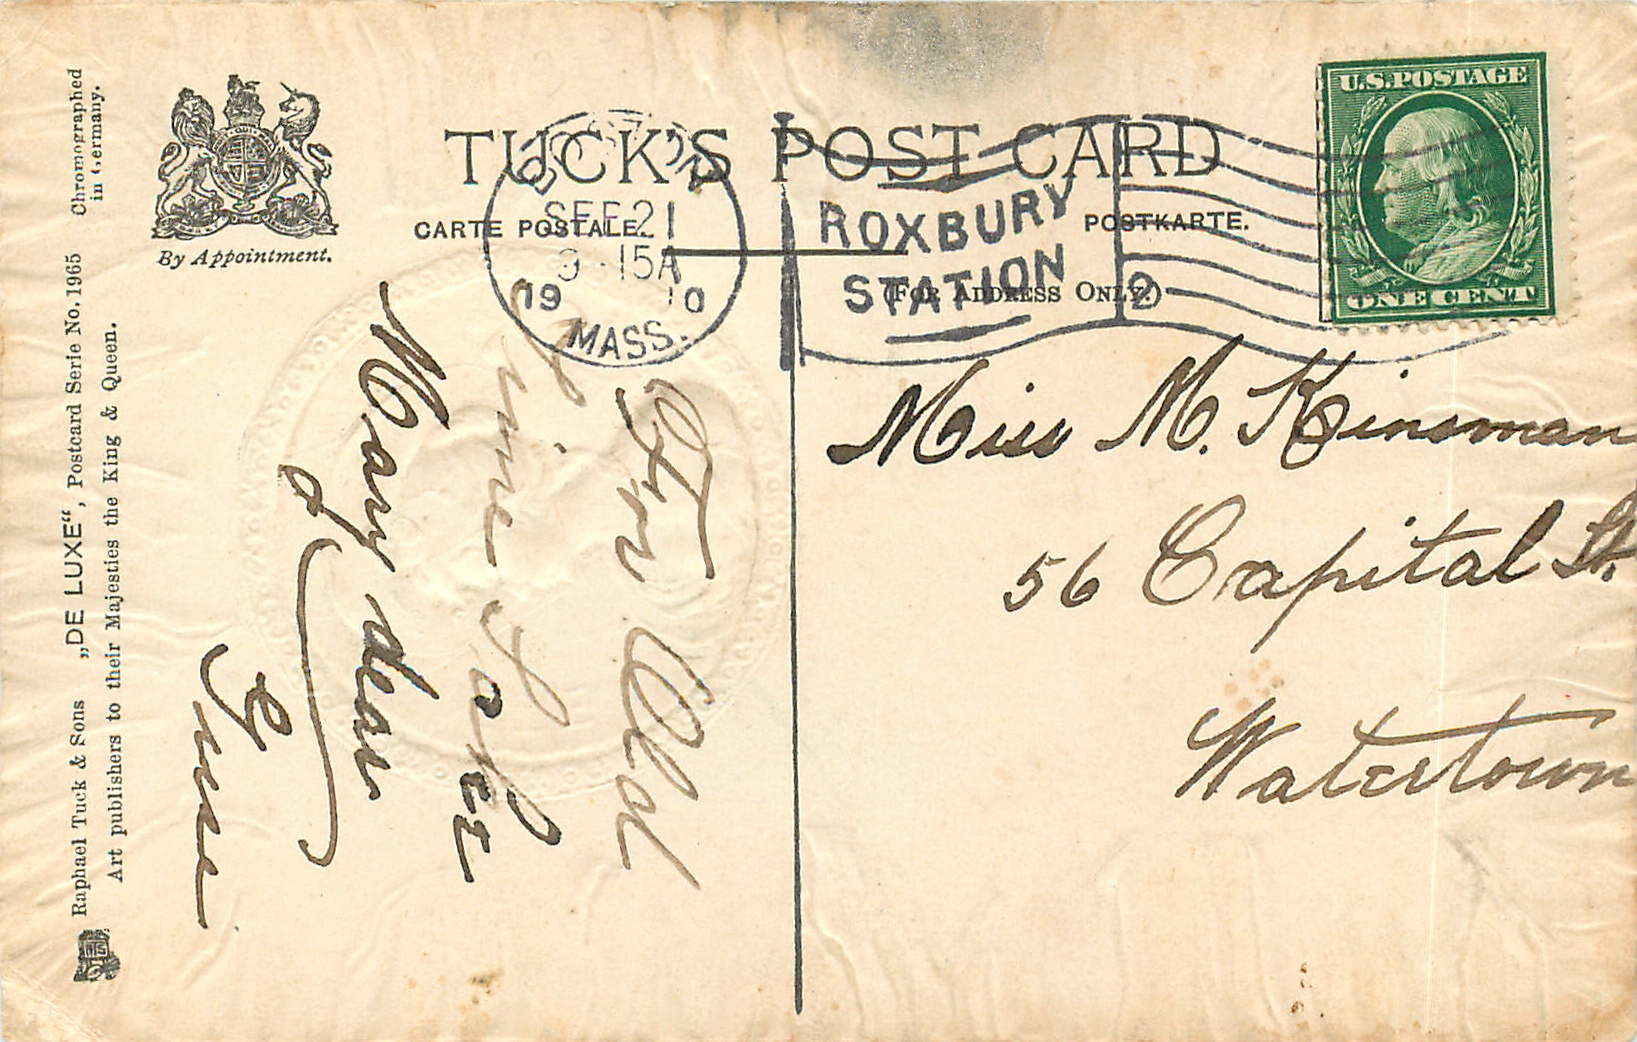 Chromographed
in Germany.
Raphael Tuck & Sons „DE LUXE“, Postcard Serie No. 1965
Art publishers to their Majesties the King & Queen.
By Appointment.
TUCK'S POST CARD
CARTE POSTALE.
POSTKARTE.
(FOR ADDRESS ONLY.)
BOSTON
SEP 21
9-15A
1910
MASS.
ROXBURY
STATION
2
U.S.POSTAGE
ONE CENT
For Old
Time Sake
Mary dear
Miss M. Kinsman
56 Capital St.
Watertown